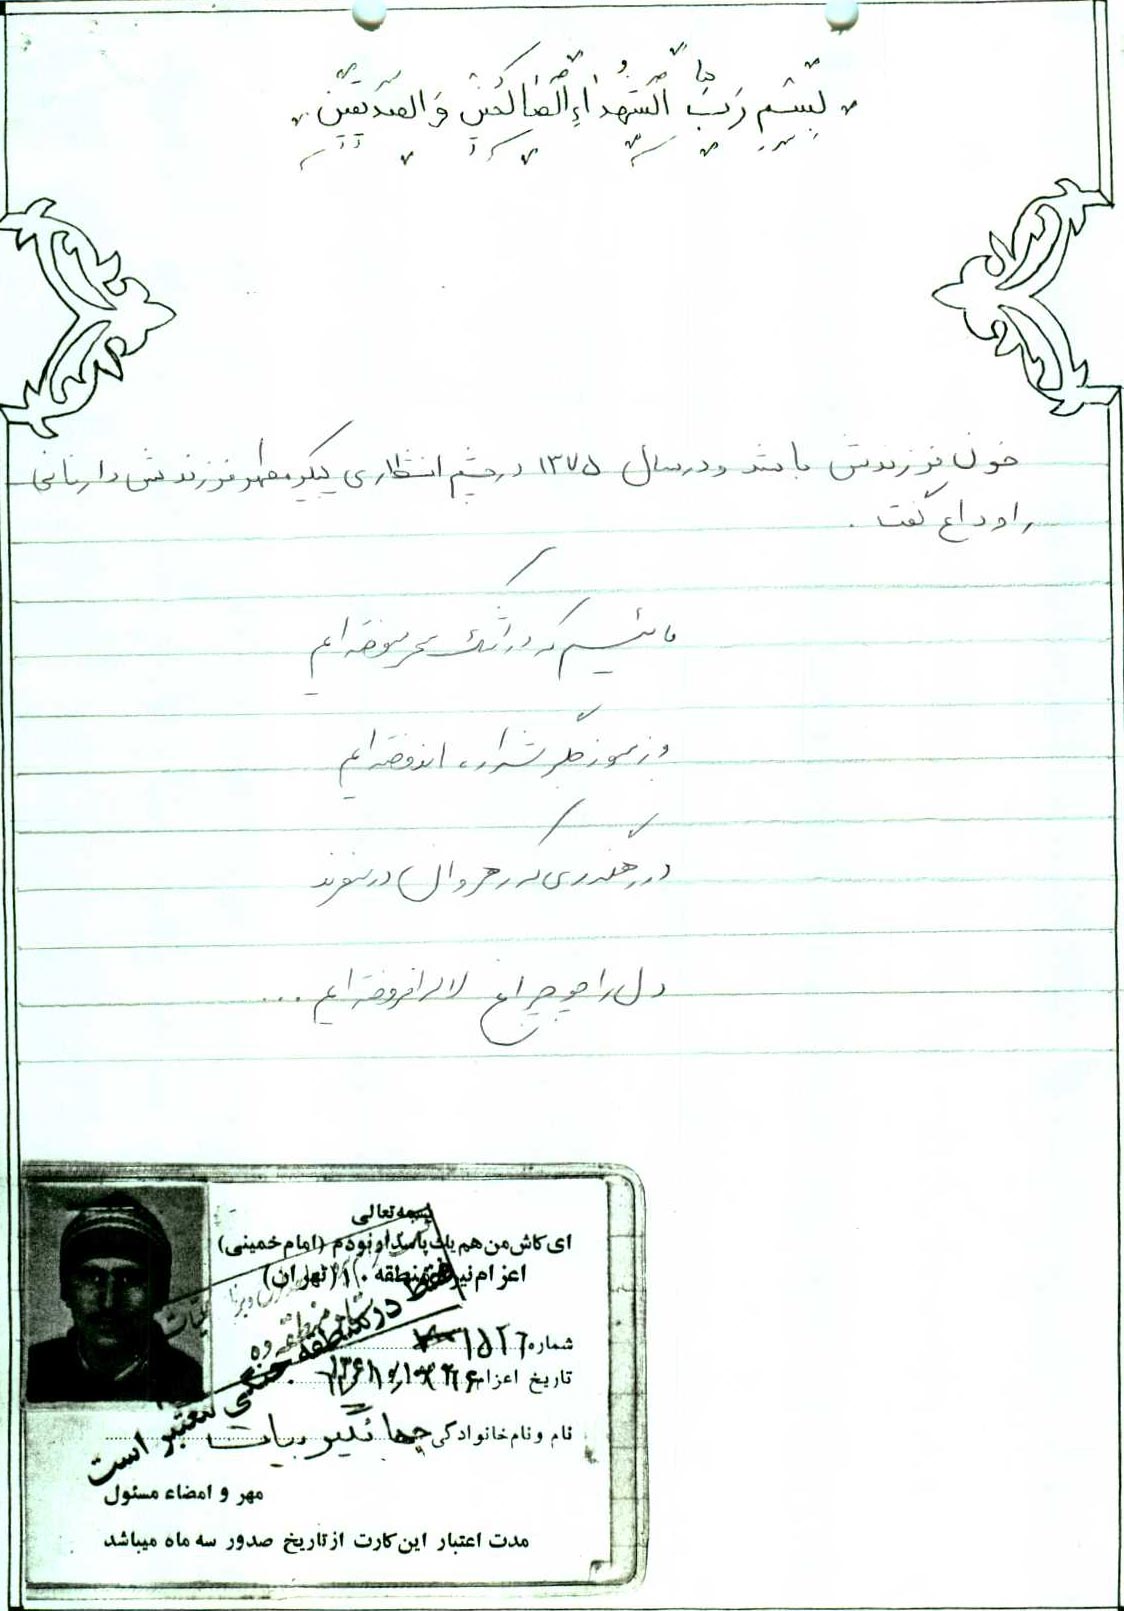 بِسْمِ رَبِّ الشُّهَداءِ الصّالِحینَ وَ الصِدِیقینَ
خون فرزندش باشد و در سال ۱۳۷۵ در چشم انتظاری پیکر مطهر فرزندش دار فانی
را وداع گفت .
مائیم که در اشک سحر سوخته ایم
وز سوز جگر شراره اندوخته ایم
در رهگذری که رهروان در سفرند
دل را چو چراغ لاله افروخته ایم ...
بسمه تعالی
ای کاش من هم یک پاسدار بودم (امام خمینی)
اعزام نیرو منطقه ۱۰ (تهران)
شماره
تاریخ اعزام
نام و نام خانوادگی جهانگیر بیات
فقط در منطقه جنگی معتبر است
مهر و امضاء مسئول
مدت اعتبار این کارت از تاریخ صدور سه ماه میباشد